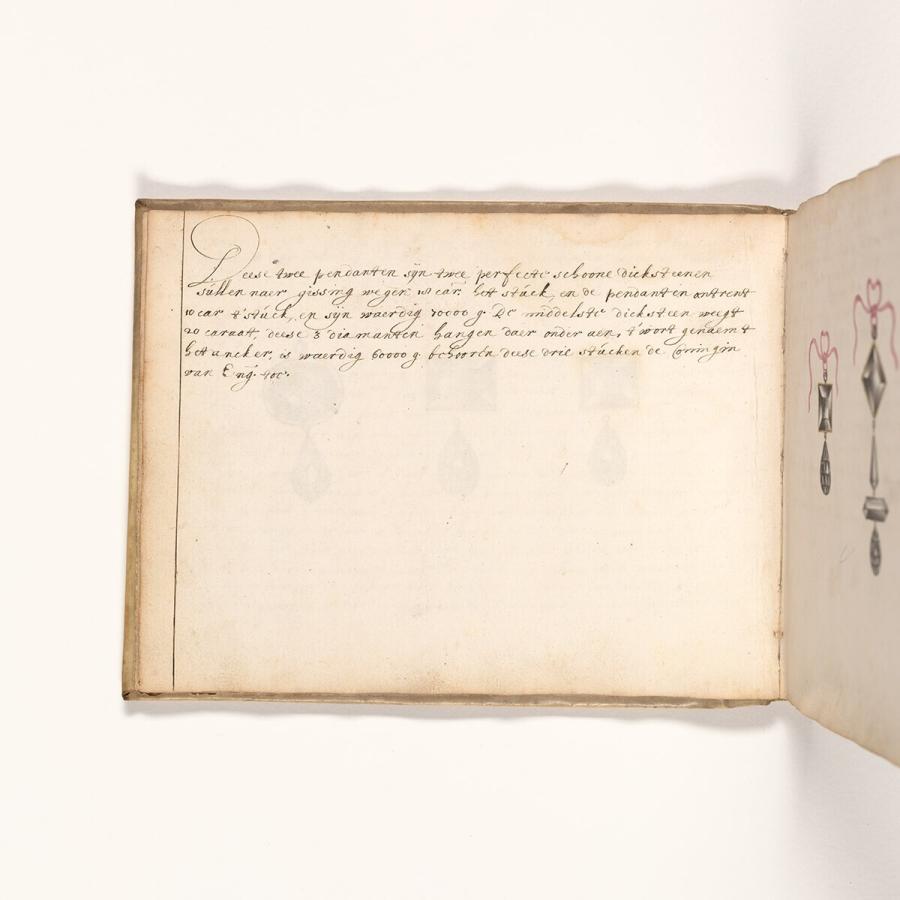 Deese twee pendanten syn twee perfecte schoone dicksteenen
sullen naer gissing wegen 18 car. het stuck, en de pendanten ontrent
10 car t'stuck, en syn waerdig 70000 g. De middelste dicksteen weegt
20 caraat, deese 3 diamanten hangen daer onder aen, t'wort genaemt
het ancker, is waerdig 60000 g. behooren deese drie stucken de Coningin
van Eng: toe.